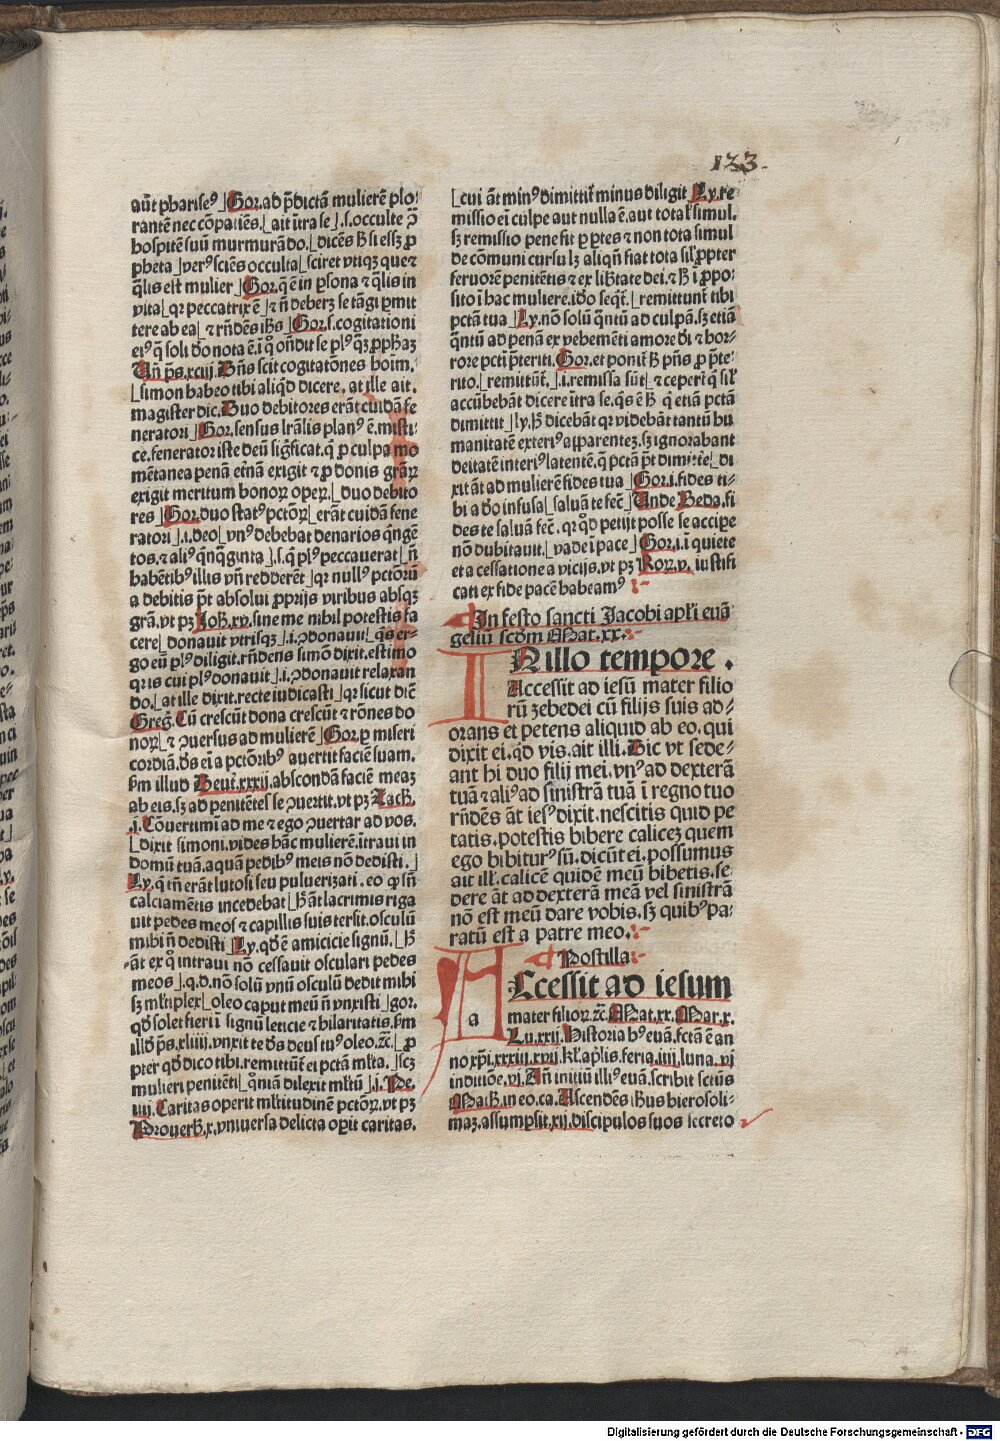 123.
aūt phariseꝰ ⌋Gor. ad p̄dictā mulierē plo-
rantē nec cōpatiēs. ⌊ait ītra se⌋.s. occulte ꝯ̄
hospitē suū murmurādo. ⌊dicēs h̄ si essꝫ ꝓ
pheta⌋verꝰ sciēs occulta⌊sciret vtiqꝫ que ⁊
q̄lis est mulier⌋Gor. q̄ ē in ꝑsona ⁊ q̄lis in
vita⌊qꝛ peccatrix ē⌋⁊ n̄ deberꝫ se tāgi ꝑmit
tere ab ea⌊⁊ rn̄dēs ih̄s⌋Gor. s. cogitationi
eiꝰ q̄ soli deo nota ē. ī q̊ on̄dit se plꝰ qꝫ ꝓph̄aꝫ
Un̄ ps̄. xciij. Dn̄s scit cogitatōnes hoīm.
⌊simon habeo tibi aliqd̄ dicere. at ille ait.
magister dic. Duo debitores erāt cuidā fe
neratori⌋Gor. sensus lr̄alis planꝰ ē. misti-
ce. fenerator iste deū sig̅ficat. q̄ ꝓ culpa mo
mētanea penā et̄nā exigit ⁊ ꝓ donis gr̄aꝝ
exigit meritum bonoꝝ opeꝝ. ⌊duo debito
res⌋Gor. duo statꝰ pctōꝝ⌊erāt cuidā fene
ratori⌋.i. deo⌊vnꝰ debebat denarios qn̄gē
tos. ⁊ aliꝰ qn̄qginta⌋.s. q̄ plꝰ peccauerat⌊n̄
habētibꝰ illis vn̄ redderēt⌋qꝛ nullꝰ pctōrū
a debitis pt̄ absolui ꝓprijs viribus absqꝫ
gr̄a. vt pꝫ Joh̄. xv. sine me nihil potestis fa
cere⌊donauit vtrisqꝫ⌋.i. ꝯdonauit⌊q̊s er-
go eū plꝰ diligit. rn̄dens simō dixit. estimo
qꝛ is cui plꝰ donauit⌋.i. ꝯdonauit relaxan
do. ⌊at ille dixit. recte iudicasti⌋qꝛ sicut dic̄
Greg̅. Cū crescūt dona crescūt ⁊ rōnes do
noꝝ⌊⁊ ꝯuersus ad mulierē⌋Gor. ꝑ miseri
cordiā. dꝰs ei a pctōribꝰ auertit faciē suam.
ẜm illud Deut̄. xxxij. abscondā faciē meaꝫ
ab eis. sꝫ ad penitētes se ꝯuertit. vt pꝫ Zach̄.
.j. Cōuertimī ad me ⁊ ego ꝯuertar ad vos.
⌊dixit simoni. vides hāc mulierē. ītraui in
domū tuā. aquā pedibꝰ meis nō dedisti.⌋
Ly. q̄ tn̄ erāt lutosi seu puluerizati. eo ꝙ sn̄
calciamētis incedebat⌊h̄ āt lacrimis riga
uit pedes meos ⁊ capillis suis tersit. osculū
mihi n̄ dedisti⌋Ly. qd̄ ē amicicie signū. ⌊h̄
āt ex q̊ intraui nō cessauit osculari pedes
meos⌋.q.d. nō solū vnū osculū dedit mihi
sꝫ ml̄tiplex⌊oleo caput meū n̄ vnxisti⌋gor.
qd̄ solet fieri ī signū leticie ⁊ hilaritatis. ẜm
illd̄ ps̄. xliiij. vnxit te dꝰs deus tuꝰ oleo. ⁊c̄. ⌊ꝓ
pter qd̄ dico tibi. remittūt̄ ei pctā ml̄ta. ⌋scꝫ
mulieri penitēti⌊qm̄ dilexit ml̄tū⌋.i. Pe.
iiij. Caritas operit ml̄titudinē pctōꝝ. vt pꝫ
Prouerb̄. x. vniuersa delicta oꝑit caritas.
⌊cui āt minꝰ dimittit̄ minus diligit⌋Ly. re
missio ei culpe aut nulla ē. aut total̓ simul.
sꝫ remissio pene fit ꝑ ꝑtes ⁊ non tota simul
de cōmuni cursu lꝫ aliqn̄ fiat tota sil̓ ꝓpter
feruorē penitētis ⁊ ex lib̄tate dei. ⁊ h̄ ī ꝓpo-
sito ī hac muliere. iō seqt̄. ⌊remittunt̄ tibi
pctā tua⌋Ly. nō solū qn̄tū ad culpā. sꝫ etiā
qn̄tū ad penā ex vehemēti amore dī ⁊ hor-
rore pcti p̄teriti. Gor. et ponit̄ h̄ pn̄s ꝓ p̄te-
rito. ⌊remittūt̄.⌋.i. remissa sūt⌊⁊ cepert̄ q̄ sil̓
accūbebāt dicere ītra se. q̊s ē h̄ q̄ etiā pctā
dimittit⌋ly. h̄ dicebāt qꝛ videbāt tantū hu
manitatē exteriꝰ apparenteꝫ. sꝫ ignorabant
deitatē interiꝰ latentē. q̄ pctā pt̄ dimitte⌊di
xit āt ad mulierē fides tua⌋Gor. i. fides ti-
bi a deo infusa⌊saluā te fec̄⌋Unde Beda. fi
des te saluā fec̄. qꝛ qd̄ petijt posse se accipe
nō dubitauit. ⌊vade ī pace⌋Gor. i. ī quiete
et a cessatione a vicijs. vt pꝫ Roꝝ. v. iustifi
cati ex fide pacē habeamꝰ :-
In festo sancti Jacobi apl̄i euā
geliū scd̄m Mat. xx. :-
IN illo tempore.
Accessit ad iesū mater filio
rū zebedei cū filijs suis ad-
orans et petens aliquid ab eo. qui
dixit ei. qd̄ vis. ait illi. Dic vt sede-
ant hi duo filij mei. vnꝰ ad dexterā
tuā ⁊ aliꝰ ad sinistrā tuā ī regno tuo
rn̄dēs āt iesꝰ dixit. nescitis quid pe
tatis. potestis bibere caliceꝫ quem
ego bibiturꝰ sū. dicūt ei. possumus
ait ill̓. calicē quidē meū bibetis. se-
dere āt ad dexterā meā vel sinistrā
nō est meū dare vobis. sꝫ quibꝰ pa-
ratū est a patre meo. :-
Postilla :-
a
ACcessit ad iesum
mater filioꝝ. ⁊c̄. Mat. xx. Mar. x.
Lu. xxij. Historia hꝰ euā. fctā ē an
no xp̄i. xxxiij. xvij. kl̓. apl̓is. feria. iiij. luna. vj
inditiōe. vj. An̄ initiū illiꝰ euā. scribit sctūs
Math̄. in eo. ca. Ascendēs ih̄us hierosoli-
maꝫ. assumpsit. xij. discipulos suos secreto
Digitalisierung gefördert durch die Deutsche Forschungsgemeinschaft - DFG